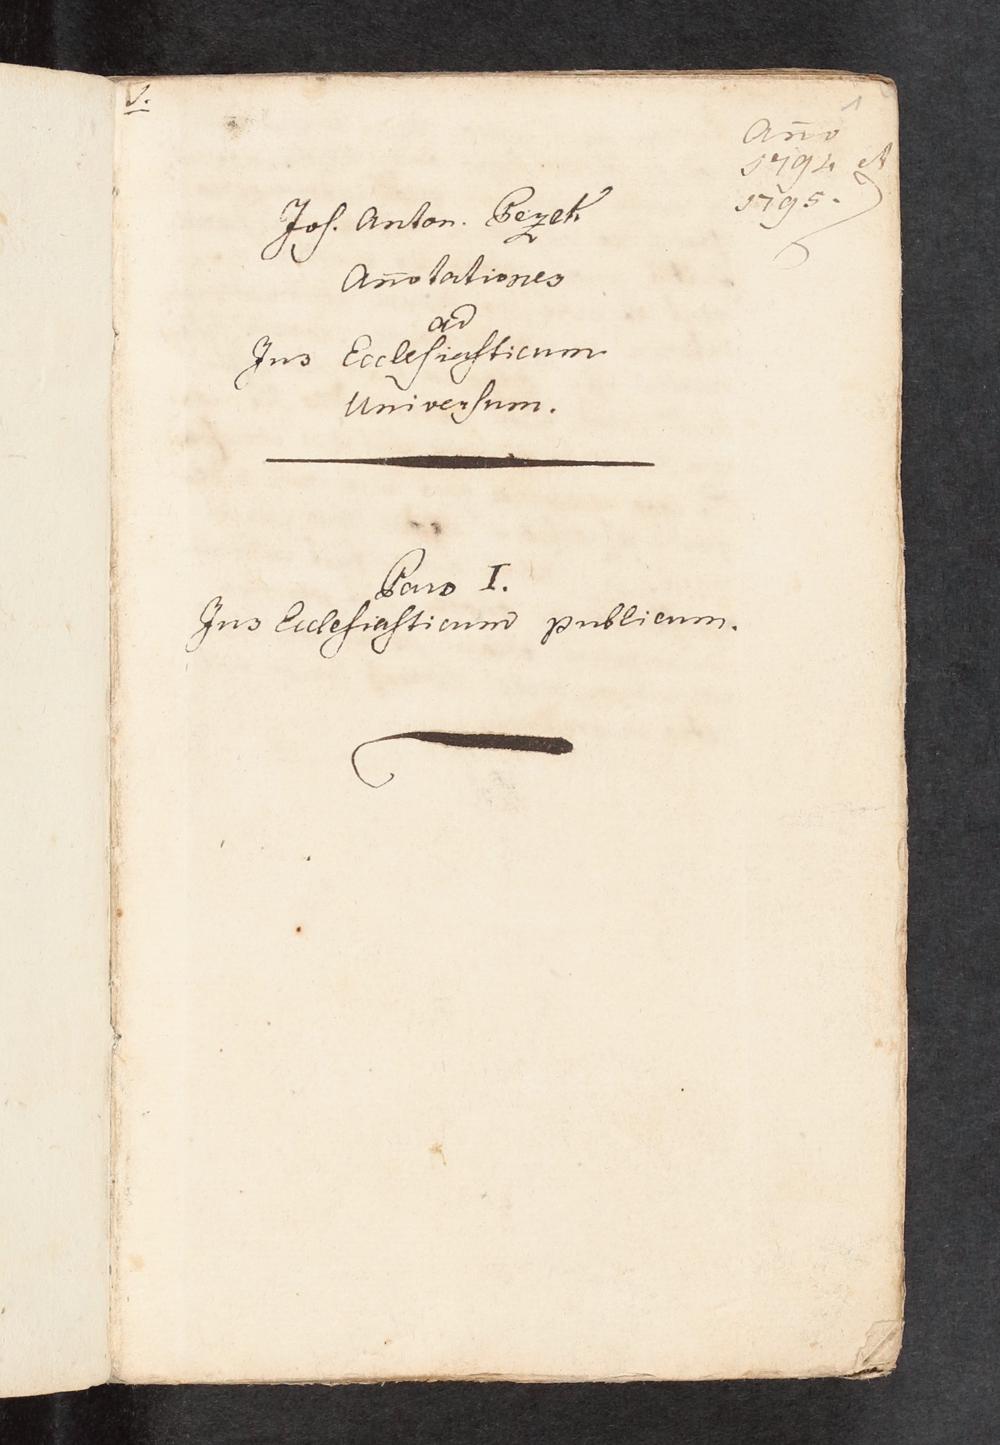 1.
Año
1794 et
1795.
Jos. Anton. Pezek
Añotationes
ad
Jus Ecclesiasticum
Universum.
Pars I.
Jus Ecclesiasticum publicum.